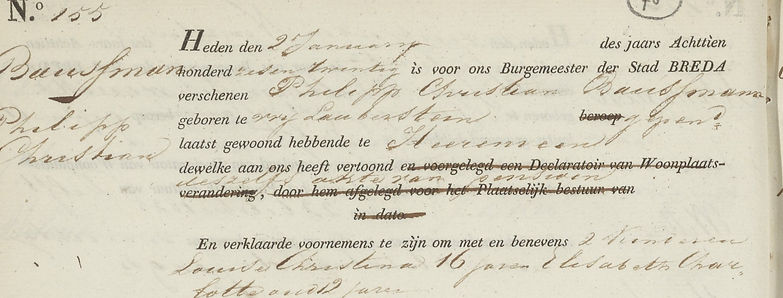 N.º 155
Heden den 2 January des jaars Achttien
Baussman honderd zesen twintig is voor ons Burgemeester der Stad BREDA
verschenen Philipp Christian Baussmann
Philipp geboren te Lauberstein beroep gepend:
Christian laatst gewoond hebbende te Heeremeen
dewelke aan ons heeft vertoond en voorgelegd een Declaratoir van Woonplaats-
deszelfs acte van pensioen
verandering, door hem afgelegd voor het Plaatselijk bestuur van
in dato
En verklaarde voornemens te zijn om met en benevens 2 Kinderen
Louise Christina 16 jaren Elisabeth Char-
lotte oud 12 jaren